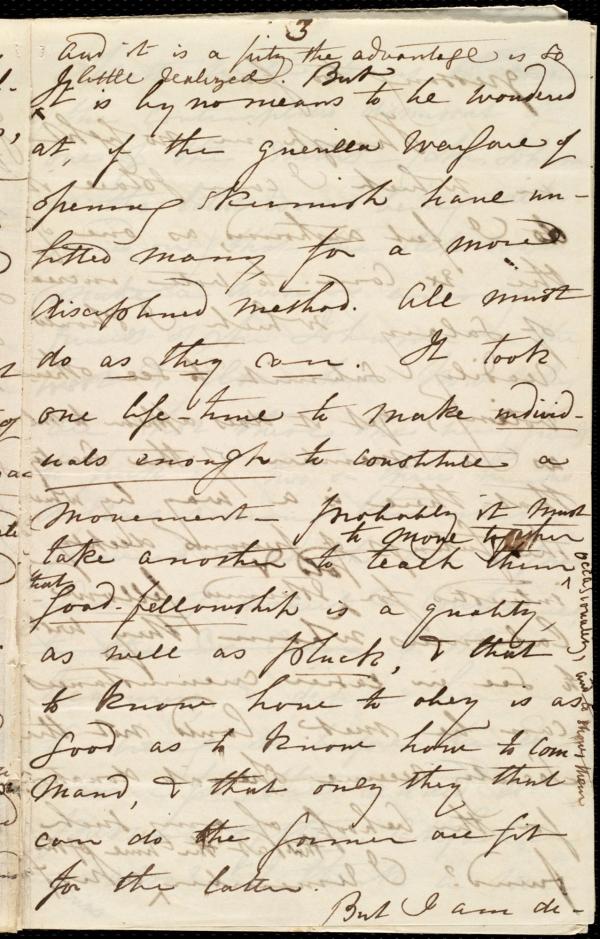 3
and it is a pity the advantage is so
little realized. But
It is by no means to be wondered
at, if the guerilla warfare of
opening skirmish have un-
fitted many for a more
disciplined method. All must
do as they can. It took
one life-time to make individ-
uals enough to constitute a
movement - probably it must
take another to teach them
to move together
occasionally, and to show them
that
good-fellowship is a quality,
as well as pluck, & that
to know how to obey is as
good as to know how to com-
mand, & that only they that
can do the former are fit
for the latter.
But I am de-